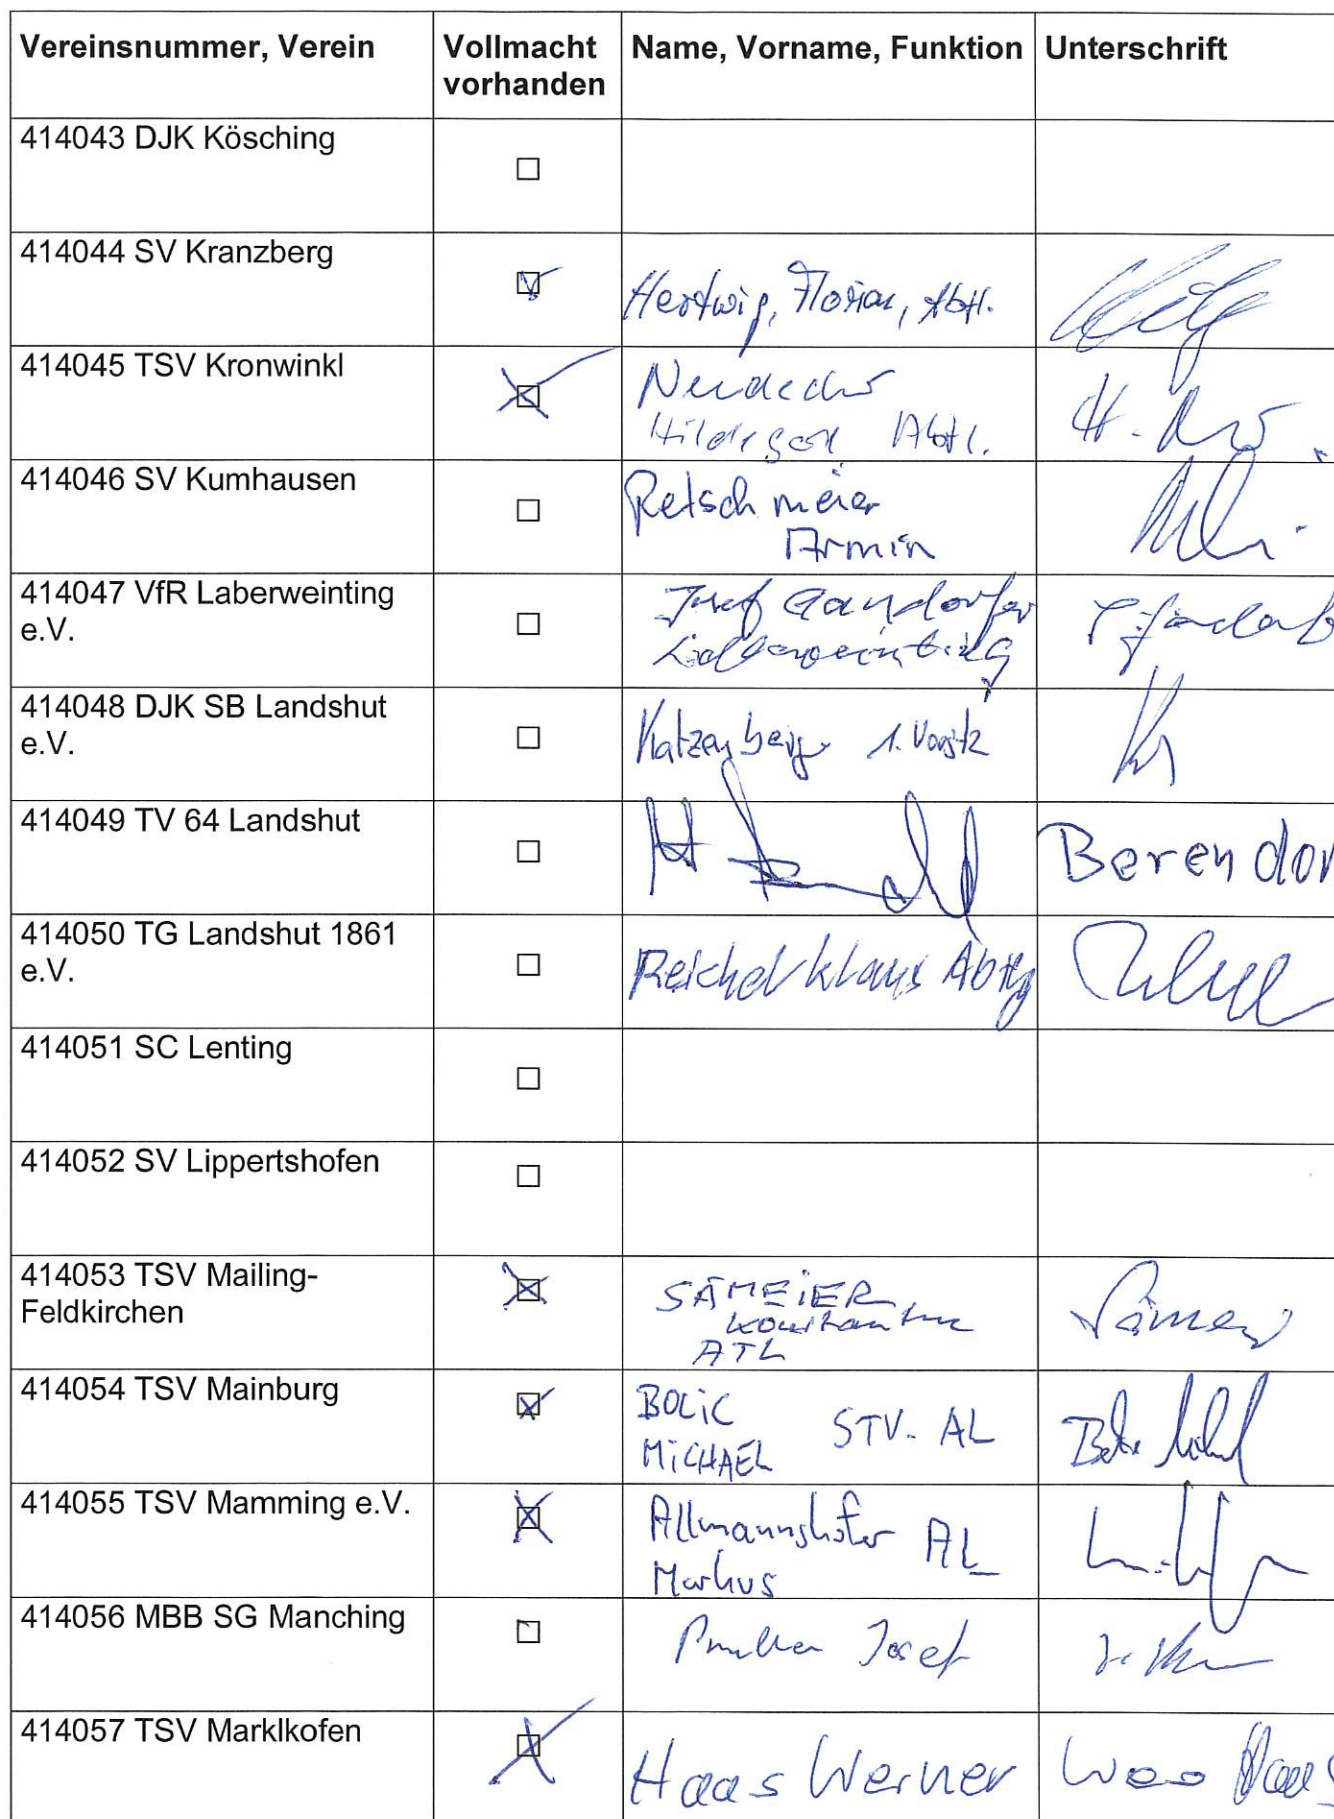 Vereinsnummer, Verein Vollmacht vorhanden Name, Vorname, Funktion Unterschrift
414043 DJK Kösching ☐
414044 SV Kranzberg ☑ Hertwig, Florian, Abtl.
414045 TSV Kronwinkl ☒ Neudecker
Hildegard Abtl.
414046 SV Kumhausen ☐ Retschmeier
Armin
414047 VfR Laberweinting
e.V. ☐ Josef Gandorfer
Laberweinting
414048 DJK SB Landshut
e.V. ☐ Katzenberger 1. Vorsitz
414049 TV 64 Landshut ☐ Berendor
414050 TG Landshut 1861
e.V. ☐ Reichel Klaus Abtlg
414051 SC Lenting ☐
414052 SV Lippertshofen ☐
414053 TSV Mailing-
Feldkirchen ☒ SÄMEIER
Konstantin
ATL
414054 TSV Mainburg ☒ BOLIC
MICHAEL STV. AL
414055 TSV Mamming e.V. ☒ Allmannshofer AL
Markus
414056 MBB SG Manching ☐ Josef
414057 TSV Marklkofen ☒ Haas Werner Haas